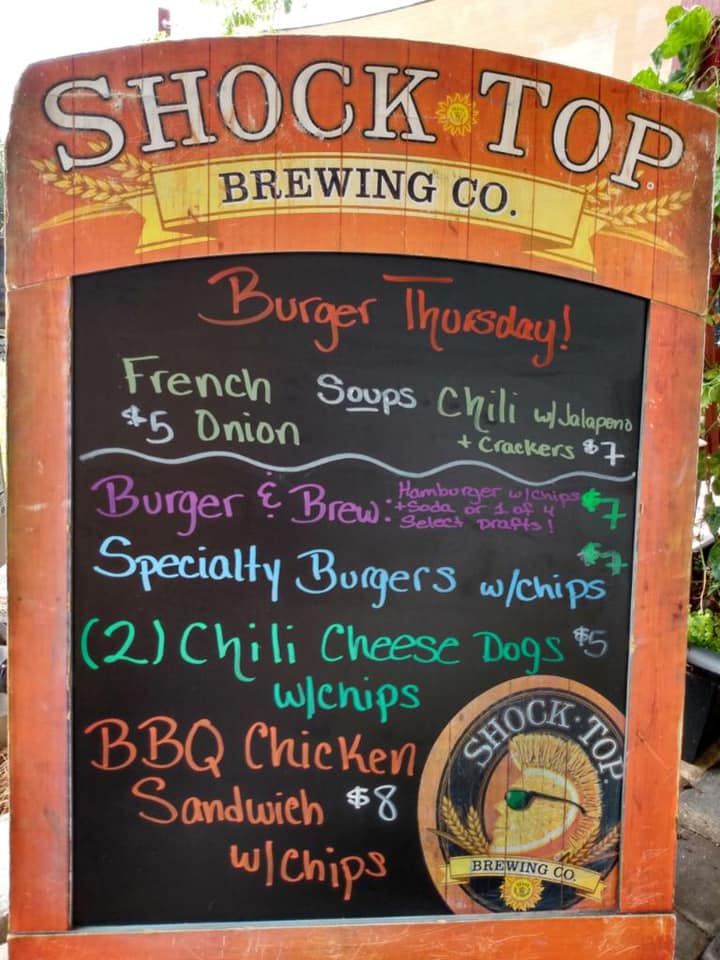 SHOCK TOP
BREWING CO.
Burger Thursday!
French Soups Chili w/Jalapeno
$5 Onion + Crackers $7
Burger & Brew: Hamburger w/chips $7
+Soda or 1 of 4
Select Drafts!
$7
Specialty Burgers w/chips
(2) Chili Cheese Dogs $5
w/chips
BBQ Chicken
Sandwich $8
w/chips
SHOCK·TOP
BREWING CO.